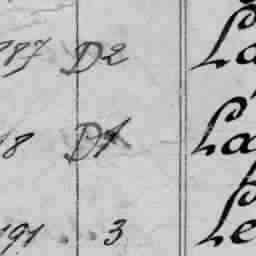 787 D2 La
18 D1 La
191 . . 3 Le